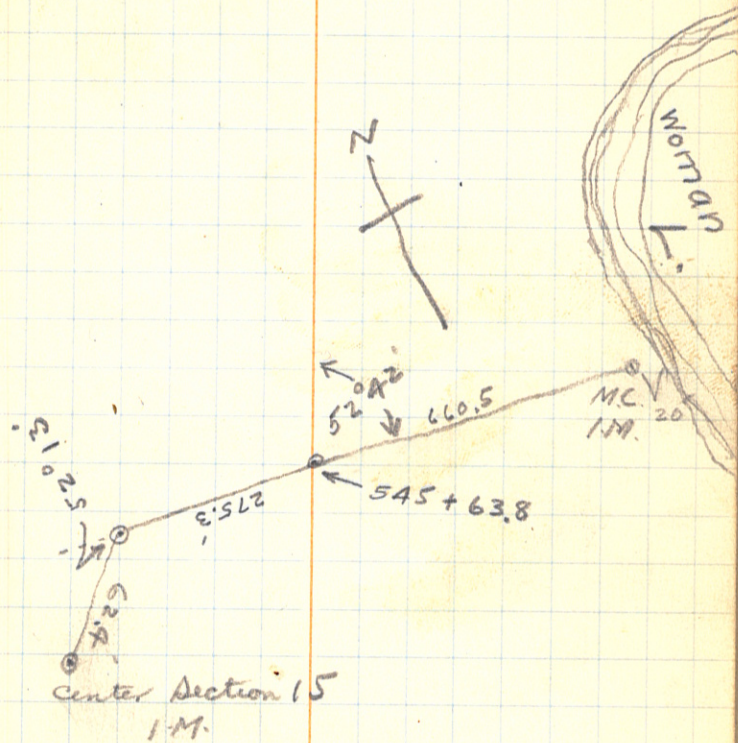 N
Woman L.
52° 42'
660.5
M.C.
I.M.
20
545 + 63.8
275.3'
52° 13'
62.4'
Center Section 15
I.M.